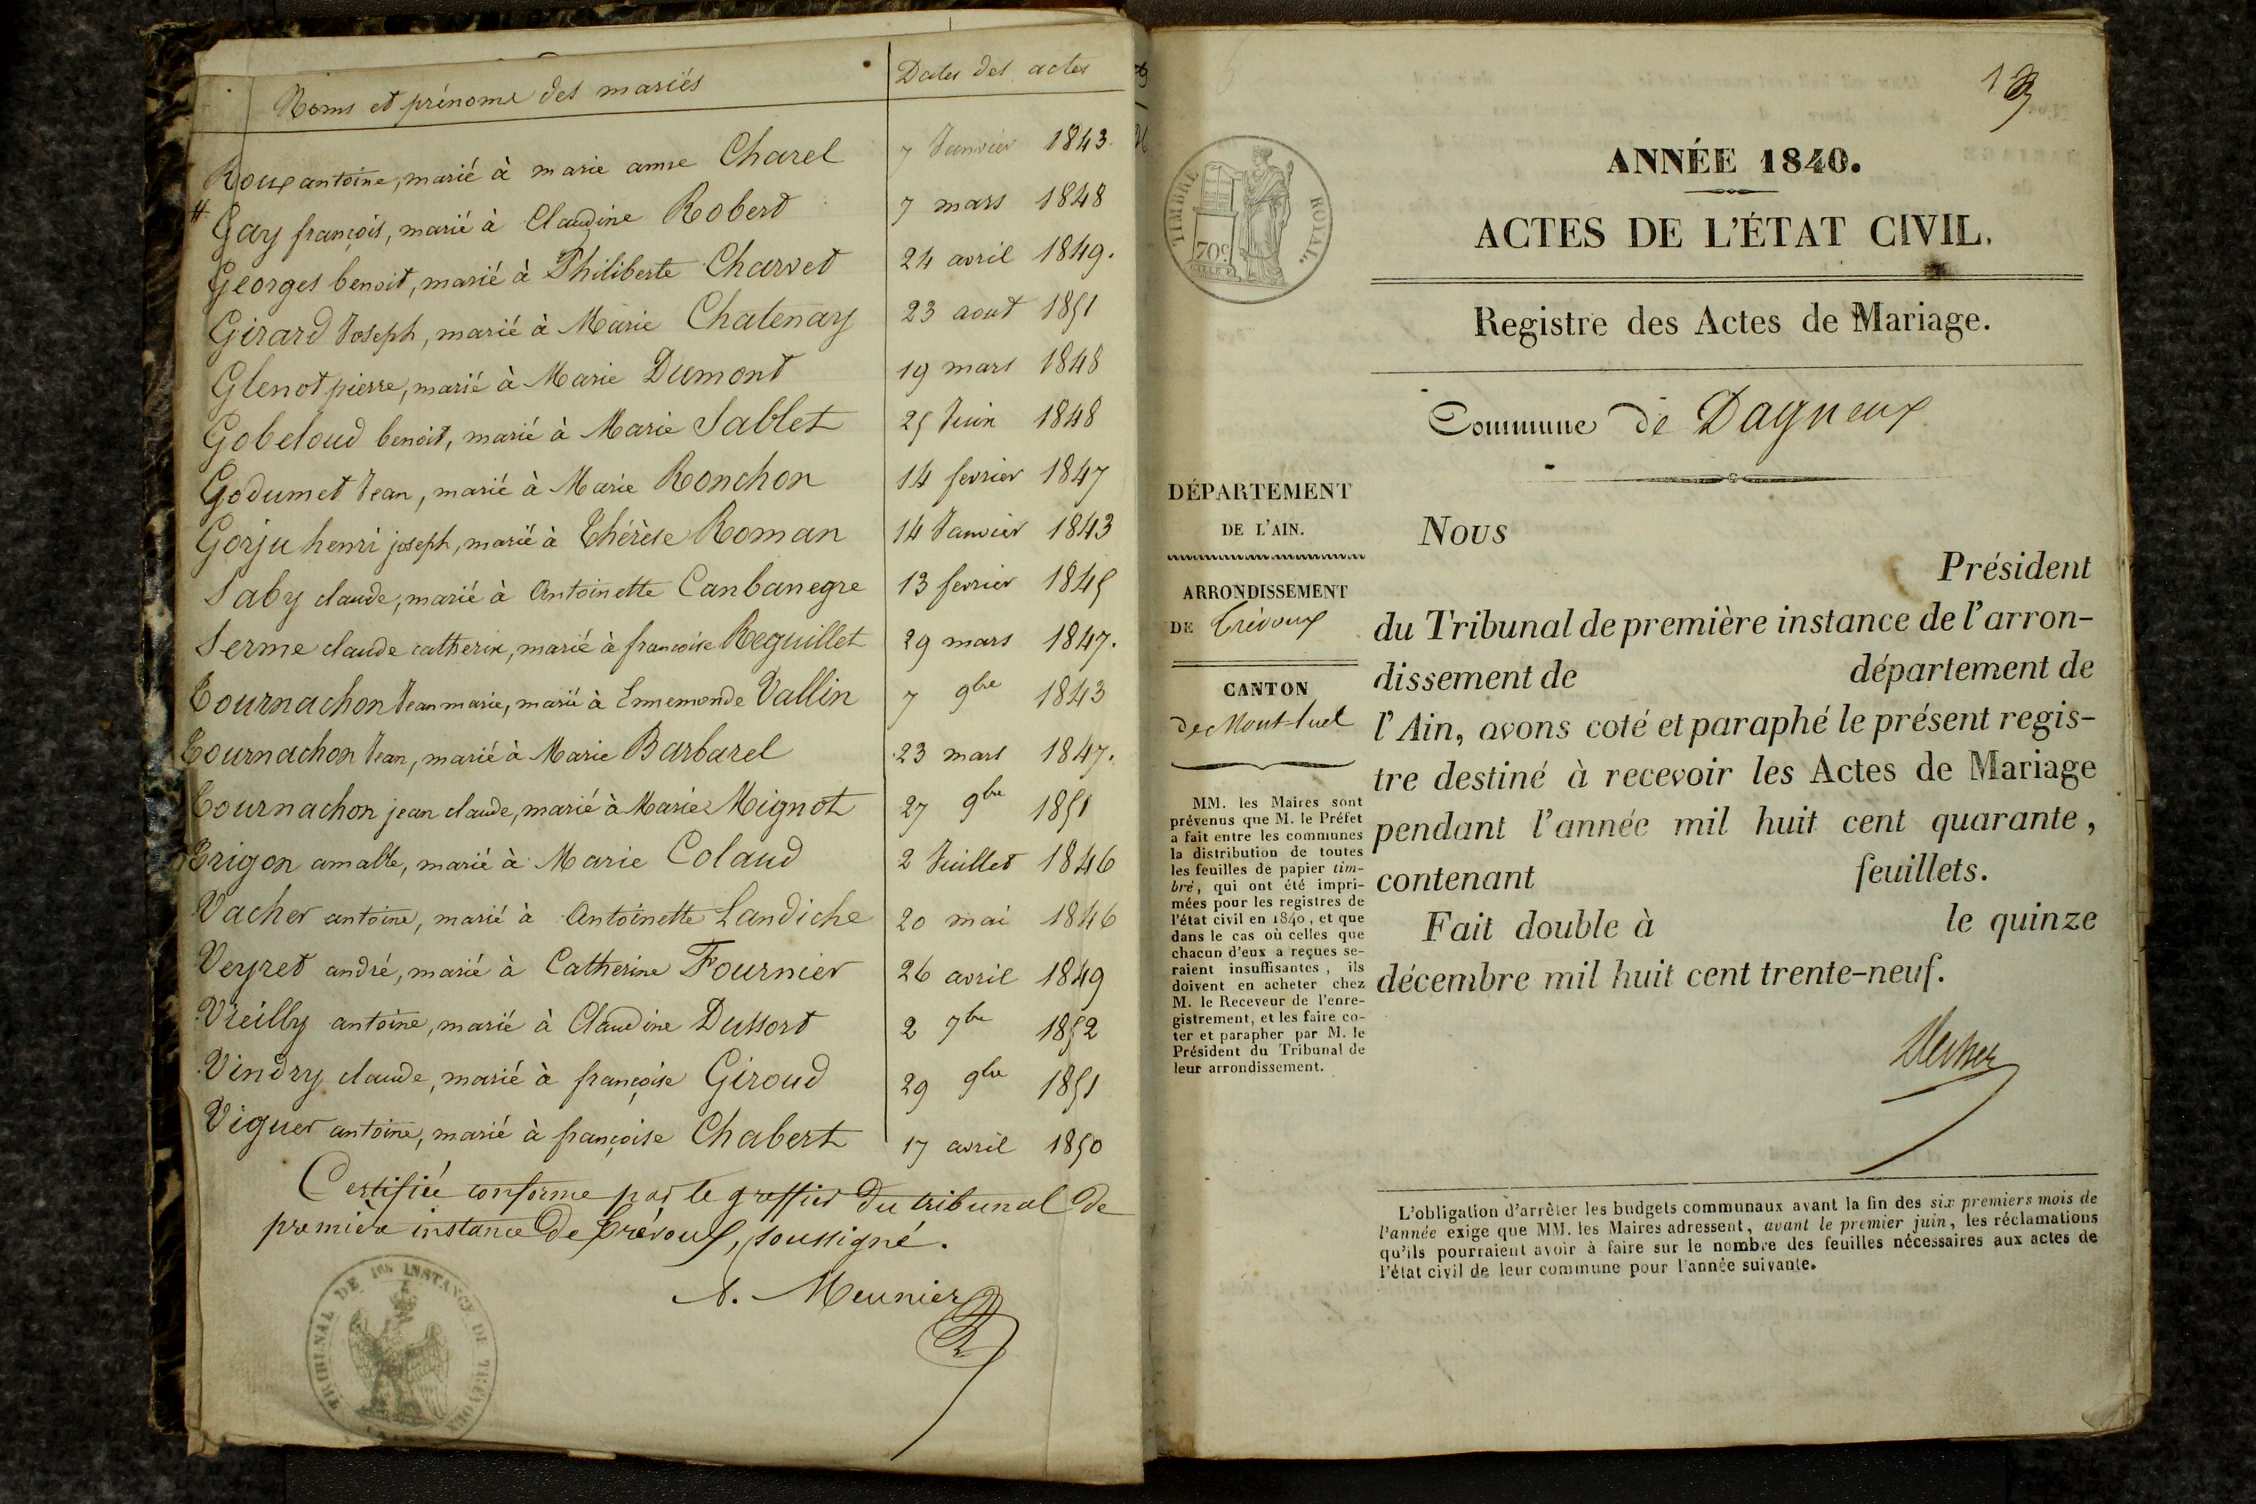 Noms et prénoms des mariés
Dates des actes
Roux antoine, marié à marie anne Charel 7 Janvier 1843.
# Gay françois, marié à Claudine Robert 7 mars 1848
Georges benoit, marié à Philiberte Charvet 24 avril 1849.
Girard Joseph, marié à Marie Chatenay 23 aout 1851
Glenot pierre, marié à Marie Dumont 19 mars 1848
Gobeloud benoit, marié à Marie Sablet 25 Juin 1848
Godumet Jean, marié à Marie Ronchon 14 fevrier 1847
Gorju henri joseph, marié à Thérèse Roman 14 Janvier 1843
Saby claude, marié à Antoinette Canbanegre 13 fevrier 1845
Serme claude catherin, marié à francoise Reguillet 29 mars 1847.
Tournachon Jean marie, marié à Ennemonde Vallin 7 9bre 1843
Tournachon Jean, marié à Marie Barbarel 23 mars 1847.
Tournachon jean claude, marié à Marie Mignot 27 9bre 1851
Trigon amable, marié à Marie Colaud 2 Juillet 1846
Vacher antoine, marié à Antoinette Landiche 20 mai 1846
Veyret andré, marié à Catherine Fournier 26 avril 1849
Vreilly antoine, marié à Claudine Dussort 2 7bre 1852
Vindry claude, marié à françoise Giroud 29 9bre 1851
Viguer antoine, marié à françoise Chabert 17 avril 1850
Certifié conforme par le greffier du tribunal de
première instance de Trévoux, soussigné.
A. Meunier
TRIBUNAL DE 1ère INSTANCE DE TREVOUX
ANNÉE 1840.
ACTES DE L'ÉTAT CIVIL.
Registre des Actes de Mariage.
TIMBRE ROYAL.
70c
Commune de Dagneux
DÉPARTEMENT
DE L'AIN.
ARRONDISSEMENT
DE Trévoux
CANTON
de Mont-luel
MM. les Maires sont
prévenus que M. le Préfet
a fait entre les communes
la distribution de toutes
les feuilles de papier tim-
bré, qui ont été impri-
mées pour les registres de
l'état civil en 1840, et que
dans le cas où celles que
chacun d'eux a reçues se-
raient insuffisantes, ils
doivent en acheter chez
M. le Receveur de l'enre-
gistrement, et les faire co-
ter et parapher par M. le
Président du Tribunal de
leur arrondissement.
Nous
Président
du Tribunal de première instance de l'arron-
dissement de département de
l'Ain, avons coté et paraphé le présent regis-
tre destiné à recevoir les Actes de Mariage
pendant l'année mil huit cent quarante,
contenant feuillets.
Fait double à le quinze
décembre mil huit cent trente-neuf.
L'obligation d'arrêter les budgets communaux avant la fin des six premiers mois de
l'année exige que MM. les Maires adressent, avant le premier juin, les réclamations
qu'ils pourraient avoir à faire sur le nombre des feuilles nécessaires aux actes de
l'état civil de leur commune pour l'année suivante.